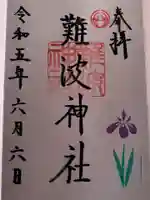 奉拝
難波神社
令和五年六月六日